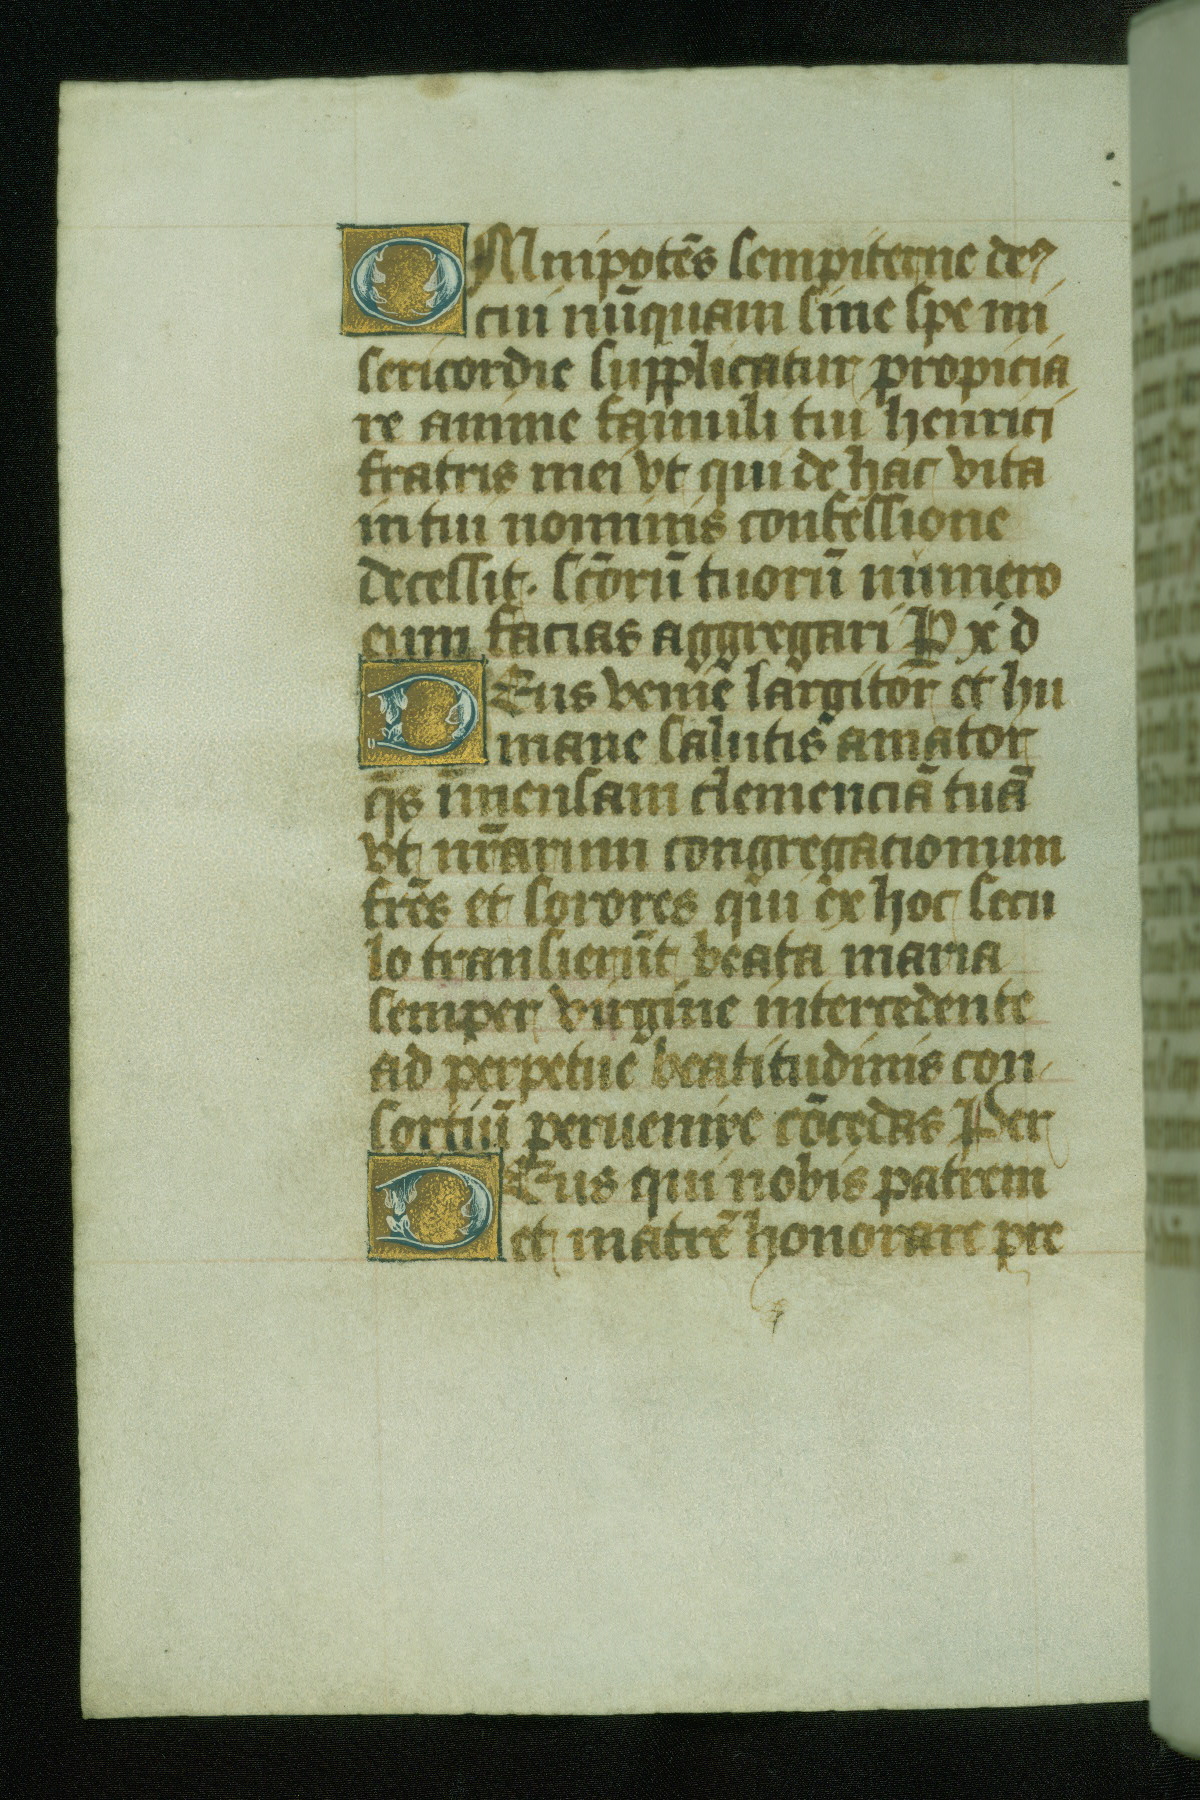 OMnipotēs sempiterne deꝰ
cui nūquam sine spe mi
sericordie supplicatur propicia
re anime famuli tui henrici
fratris mei vt qui de hac vita
in tui nominis confessione
decessit. scōrū tuorū numero
eum facias aggregari P xi d
DEus venie largitor et hu
mane salutis amator
qs̄ īmensam clemenciā tuā
vt nr̄arum congregacionum
frēs et sorores qui ex hoc secu
lo transierūt beata maria
semper virgine intercedente
ad perpetue beatitudinis con
sortiū peruenire cōcedas Per
DEus qui nobis patrem
et matrē honorare pre